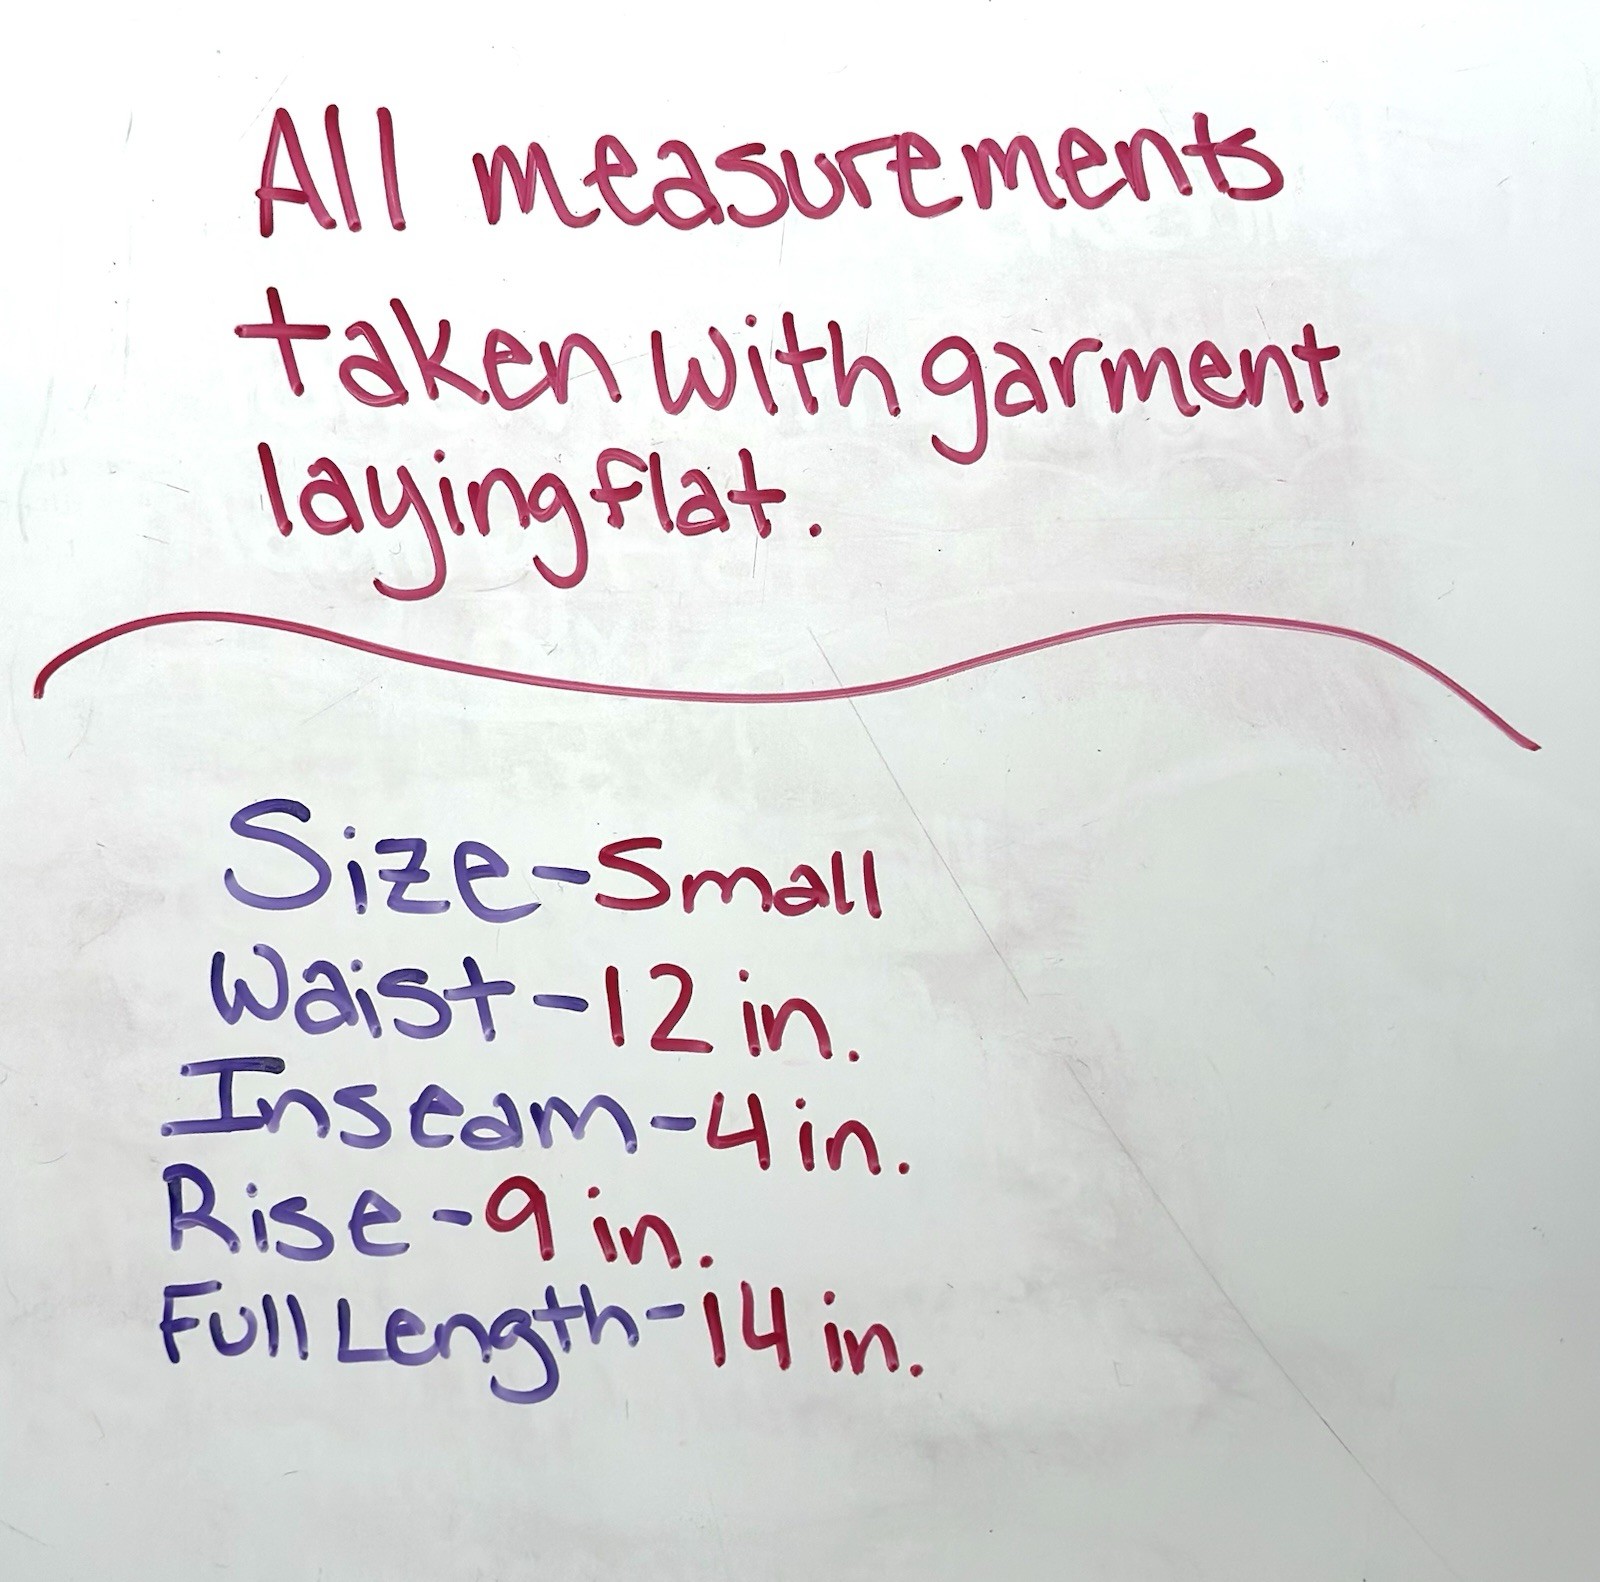 All measurements
taken with garment
laying flat.
Size-Small
Waist-12 in.
Inseam-4 in.
Rise-9 in.
Full Length-14 in.